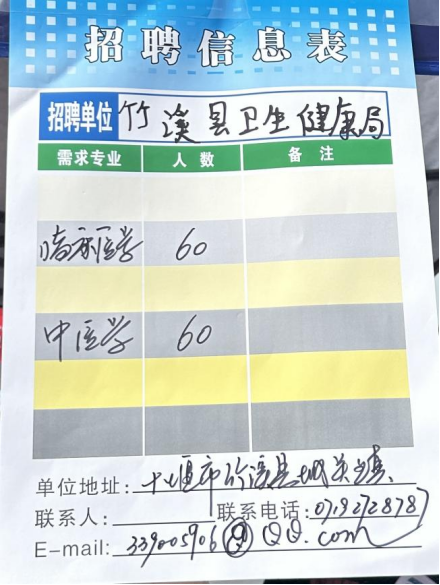 招聘信息表
招聘单位 竹溪县卫生健康局
需求专业 人数 备注
临床医学 60
中医学 60
单位地址: 十堰市竹溪县城关镇
联系人: 联系电话: 07192728787
E-mail: 339005906@QQ.com